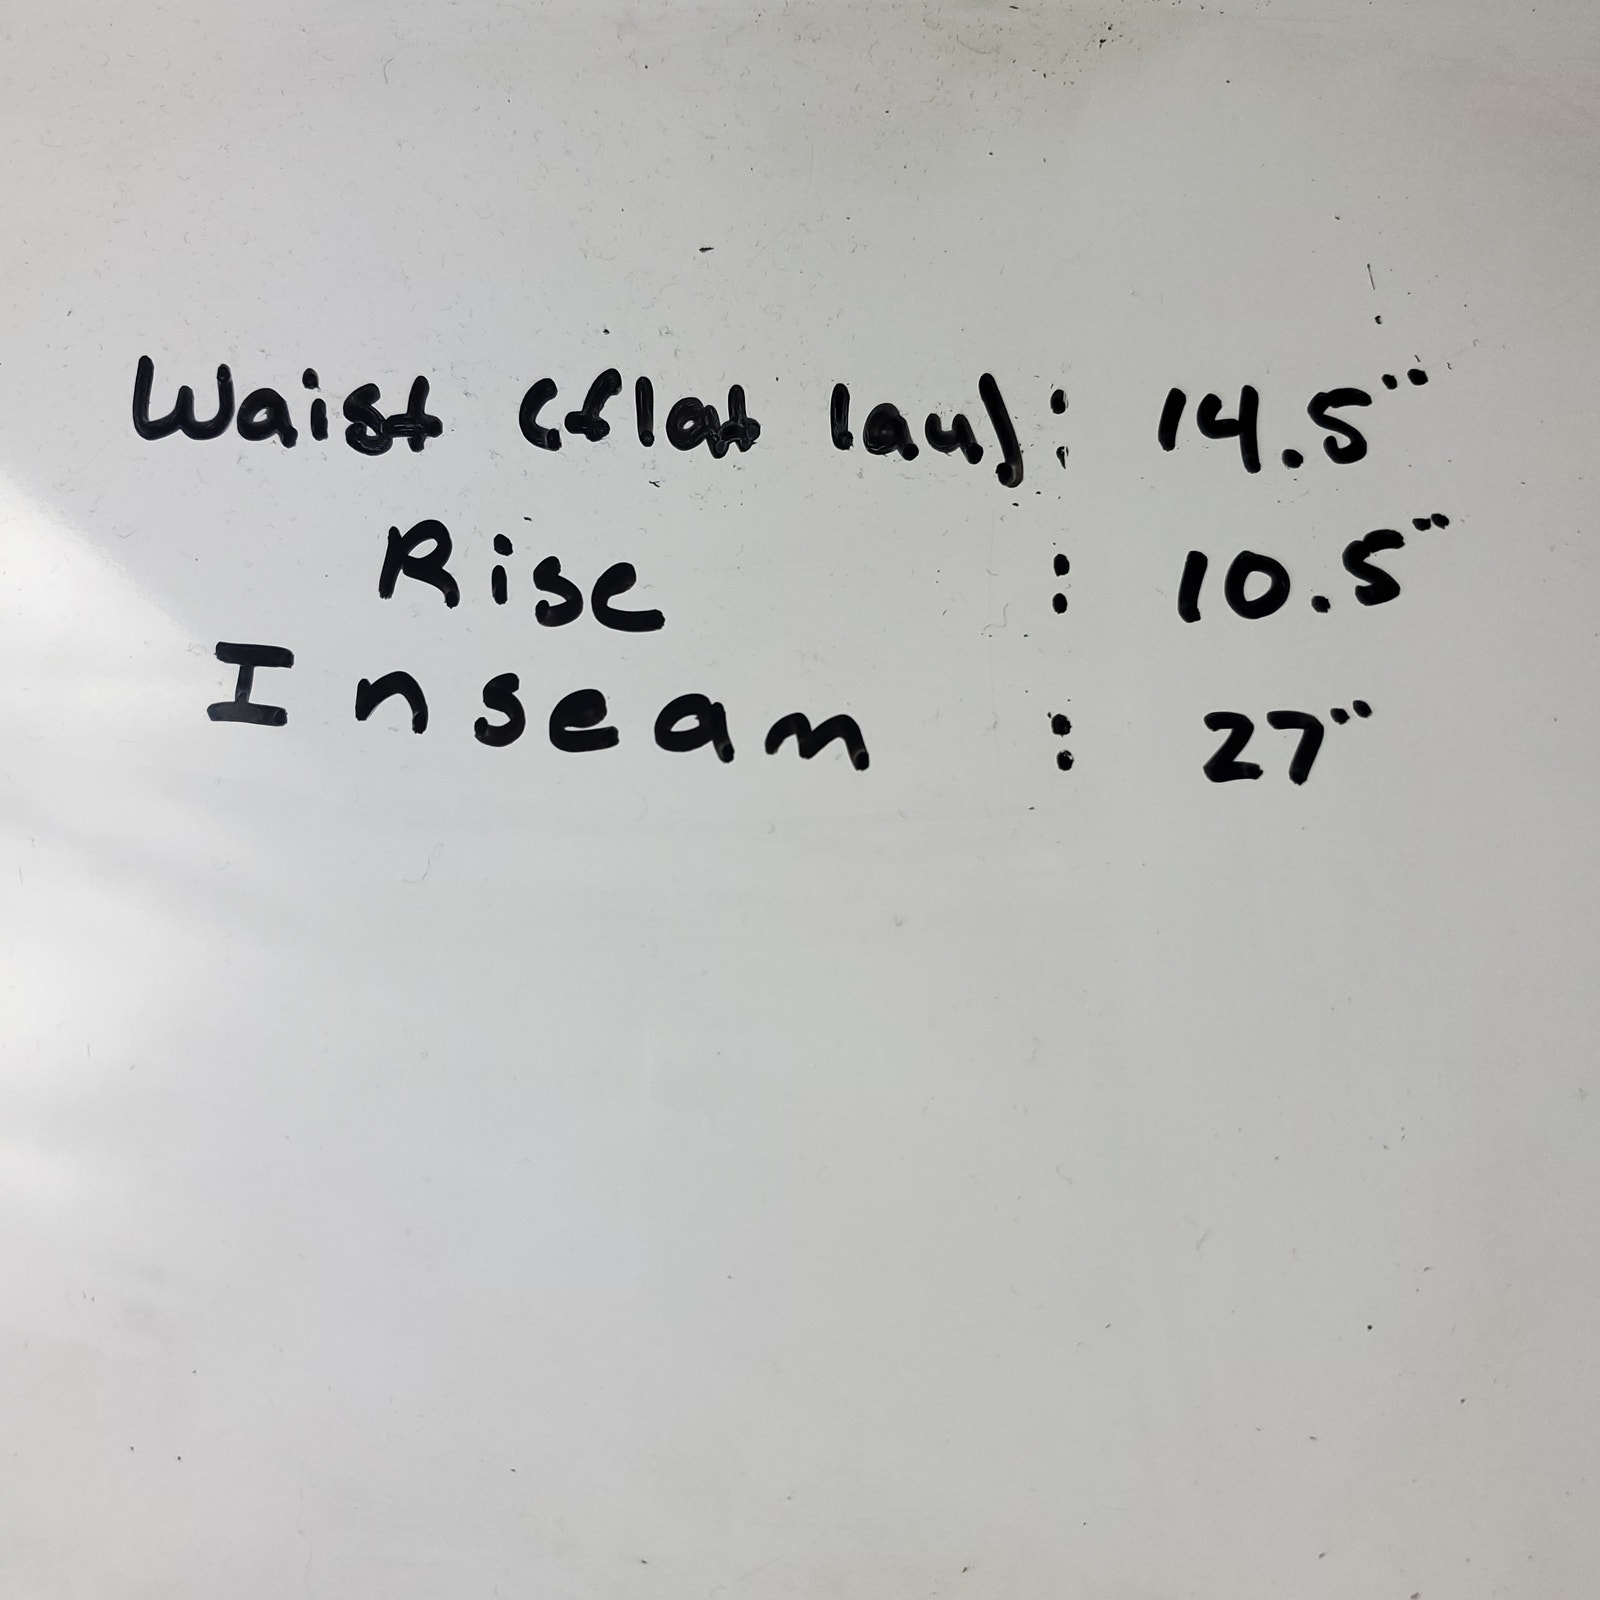 Waist (flat lay): 14.5"
Rise : 10.5"
Inseam : 27"